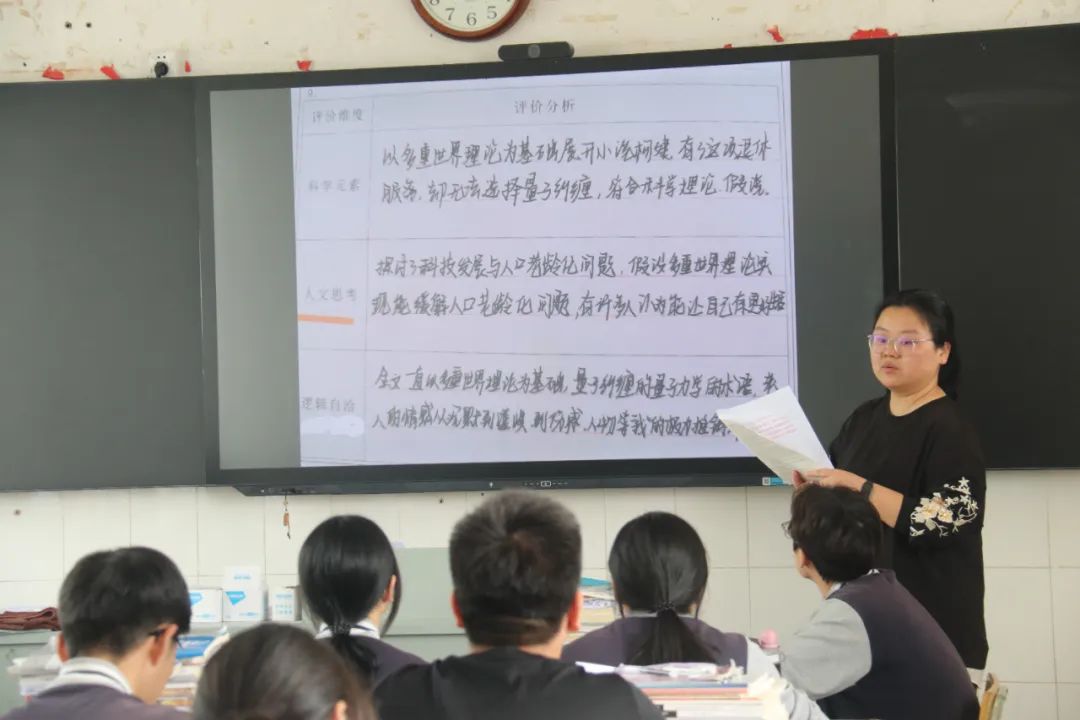 8 7 6 5
9
评价维度
评价分析
科学元素
以多重世界理论为基础展开小说构建.有了这项退休
服务.却无法选择量子纠缠，符合科学理论.假说.
人文思考
探讨了科技发展与人口老龄化问题，假设多重世界理论实
现能缓解人口老龄化问题,有许多人认为能让自己有更
逻辑自洽
全文一直以多重世界理论为基础,量子纠缠的量子力学的术语,
人的情感从沉默到